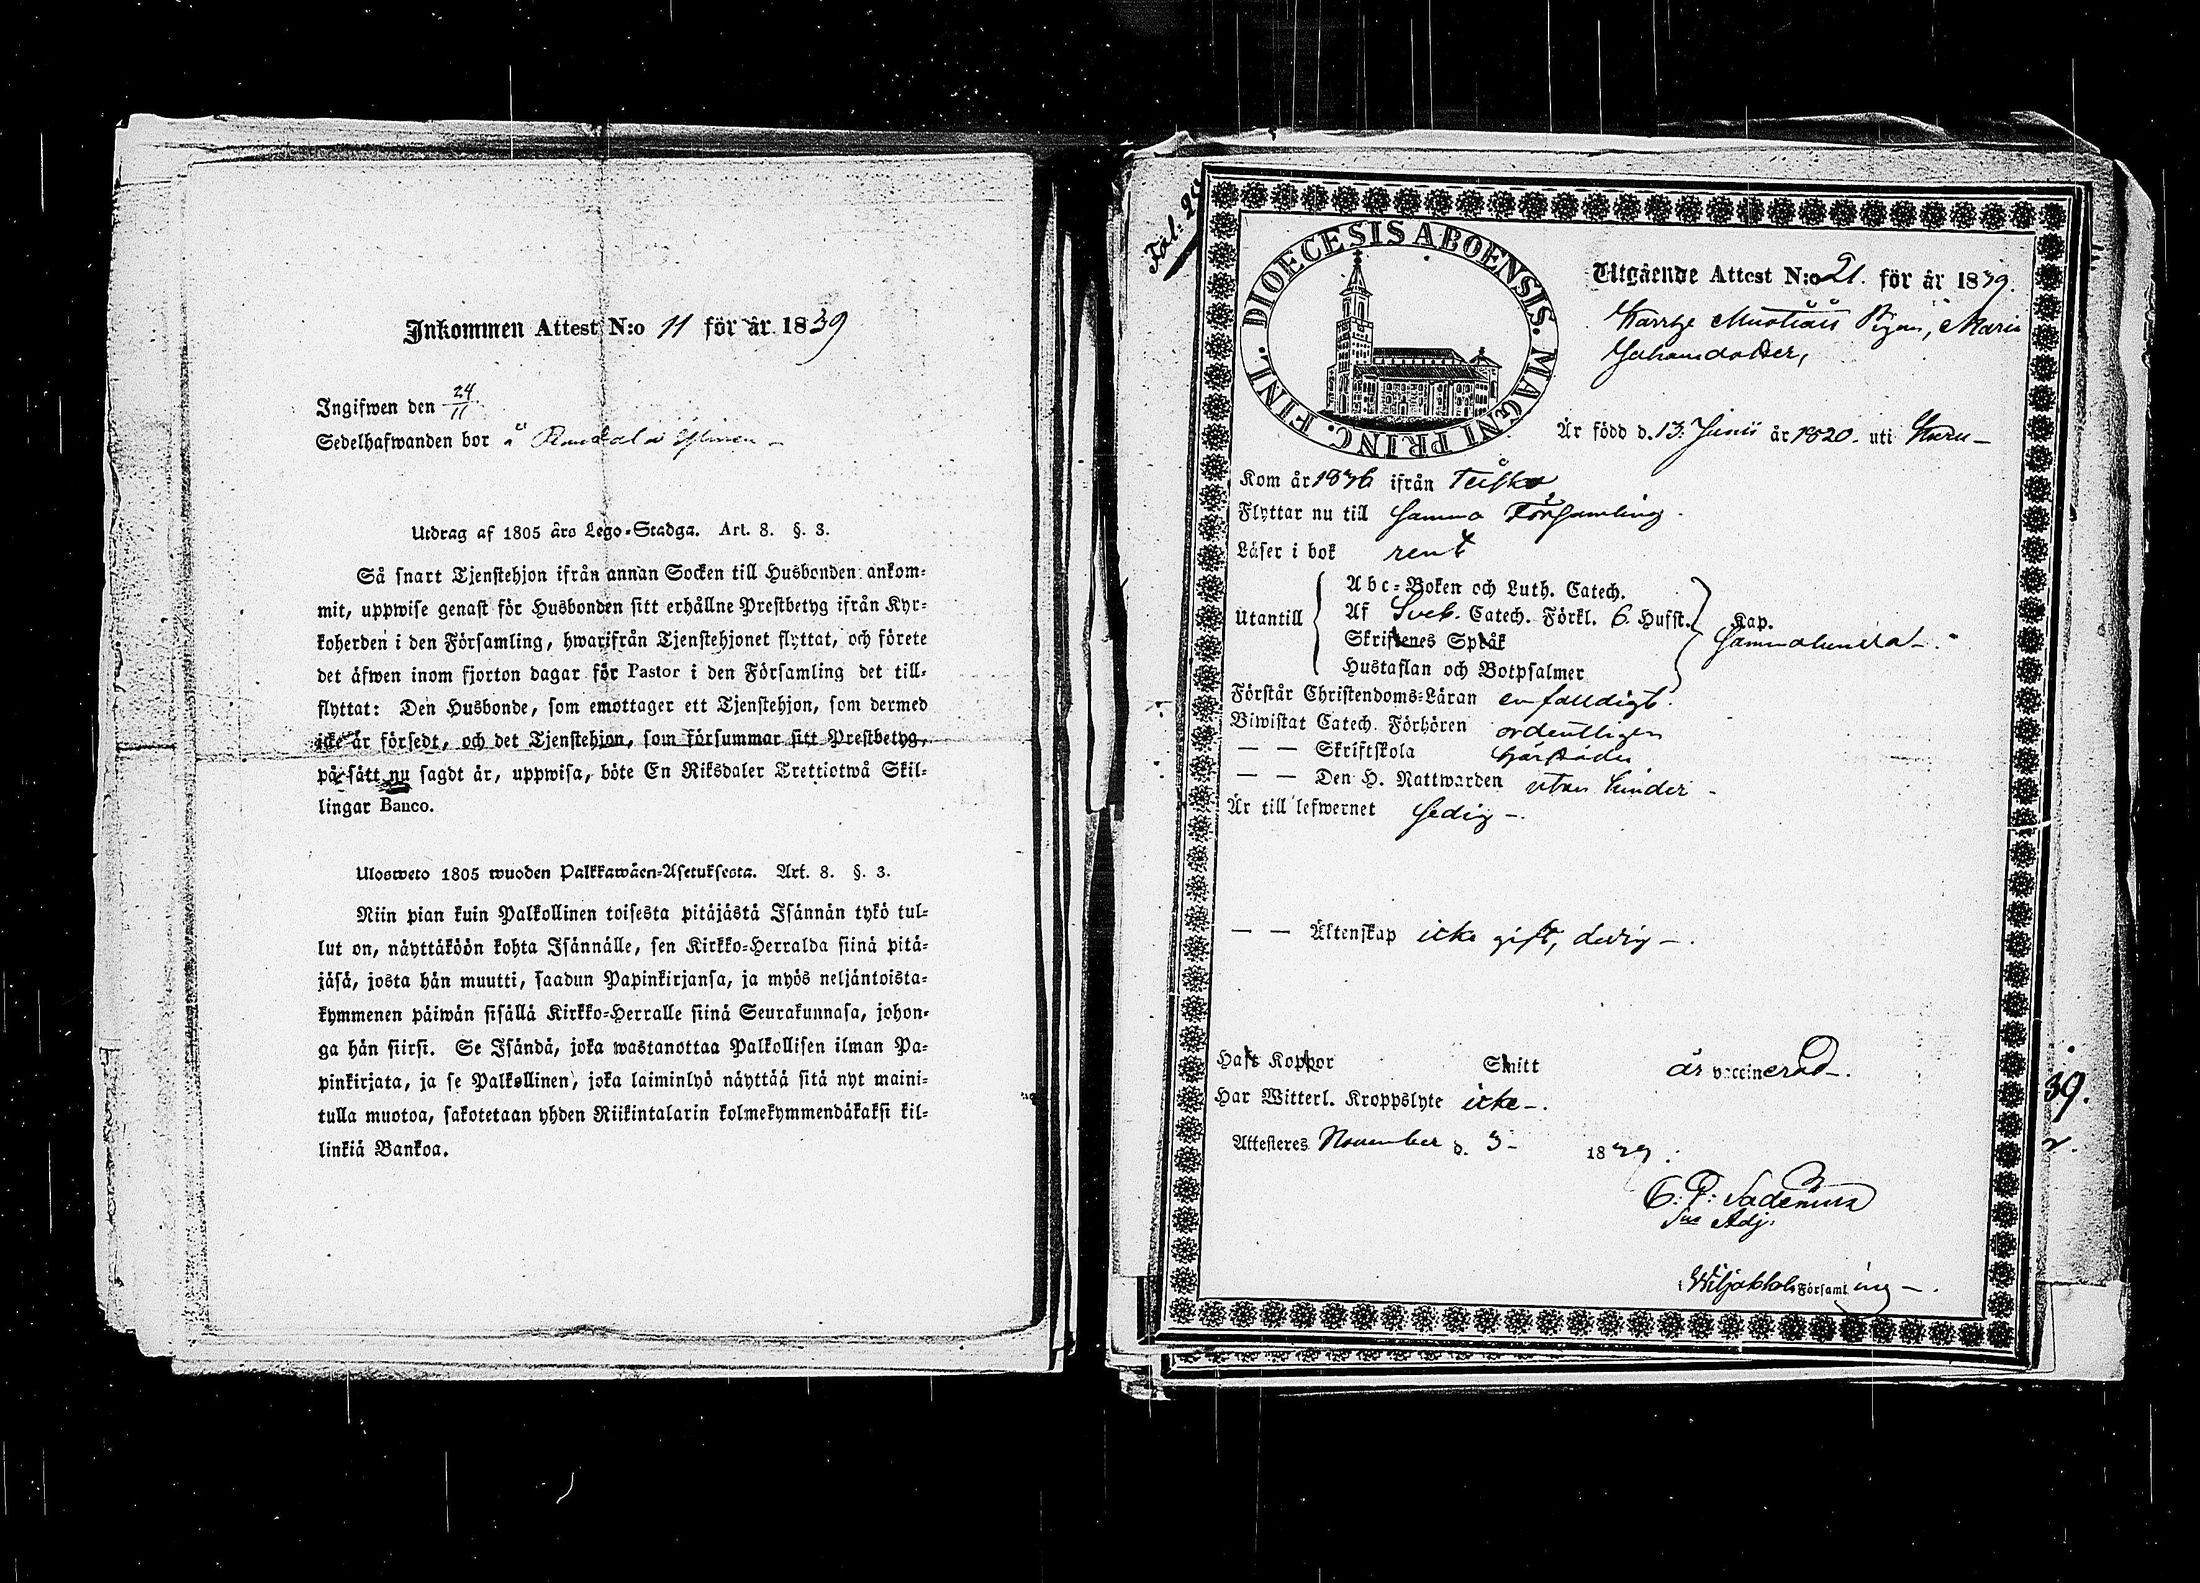 Inkommen Attest N:o 11 för år 1839
Ingifwen den 24/11
Sedelhafwanden bor å
Utdrag af 1805 års Lego-Stadga. Art. 8. §. 3.
Så snart Tjenstehjon ifrån annan Socken till Husbonden ankom-
mit, uppwise genast för Husbonden sitt erhållne Prestbetyg ifrån Kyr-
koherden i den Församling, hwarifrån Tjenstehjonet flyttat, och förete
det äfwen inom fjorton dagar för Pastor i den Församling det till-
flyttat: Den Husbonde, som emottager ett Tjenstehjon, som dermed
icke är försedt, och det Tjenstehjon, som försummar sitt Prestbetyg,
på sätt nu sagdt är, uppwisa, böte En Riksdaler Trettiotwå Skil-
lingar Banco.
Ulosweto 1805 wuoden Palkkawäen-Asetuksesta. Art. 8. §. 3.
Niin pian kuin Palkollinen toisesta pitäjästä Isännän tykö tul-
lut on, näyttäköön kohta Isännälle, sen Kirkko-Herralda siinä pitä-
jäsä, josta hän muutti, saadun Papinkirjansa, ja myös neljäntoista-
kymmenen päiwän sisällä Kirkko-Herralle siinä Seurakunnasa, johon-
ga hän siirsi. Se Isändä, joka wastanottaa Palkollisen ilman Pa-
pinkirjata, ja se Palkollinen, joka laiminlyö näyttää sitä nyt maini-
tulla muotoa, sakotetaan yhden Riikintalarin kolmekymmendäkaksi kil-
linkiä Bankoa.
DIOECESIS ABOENSIS. MAGNI PRINC. FINL.
Utgående Attest N:o 21. för år 1839.
Pigan, Maria
Johansdotter,
Är född d. 13. Junii år 1820. uti Kuru
Kom år 1836 ifrån Teisko
Flyttar nu till samma Församling.
Läser i bok rent
Utantill
Abc-Boken och Luth. Catech.
Af Sveb. Catech. Förkl. 6 Hufst. Kap.
Skriftenes Språk
Hustaflan och Botpsalmer
Förstår Christendoms-Läran enfalldigt.
Biwistat Catech. Förhören ordentligen
— — Skriftskola
— — Den H. Nattwarden utan hinder
Är till lefwernet sedig
— — Äktenskap icke gift, ledig
Haft Koppor Smitt är vaccinerad
Har Witterl. Kroppslyte icke
Attesteres November d. 3 1839
Adj.
Wiljakkala Församling
Fol:
39.